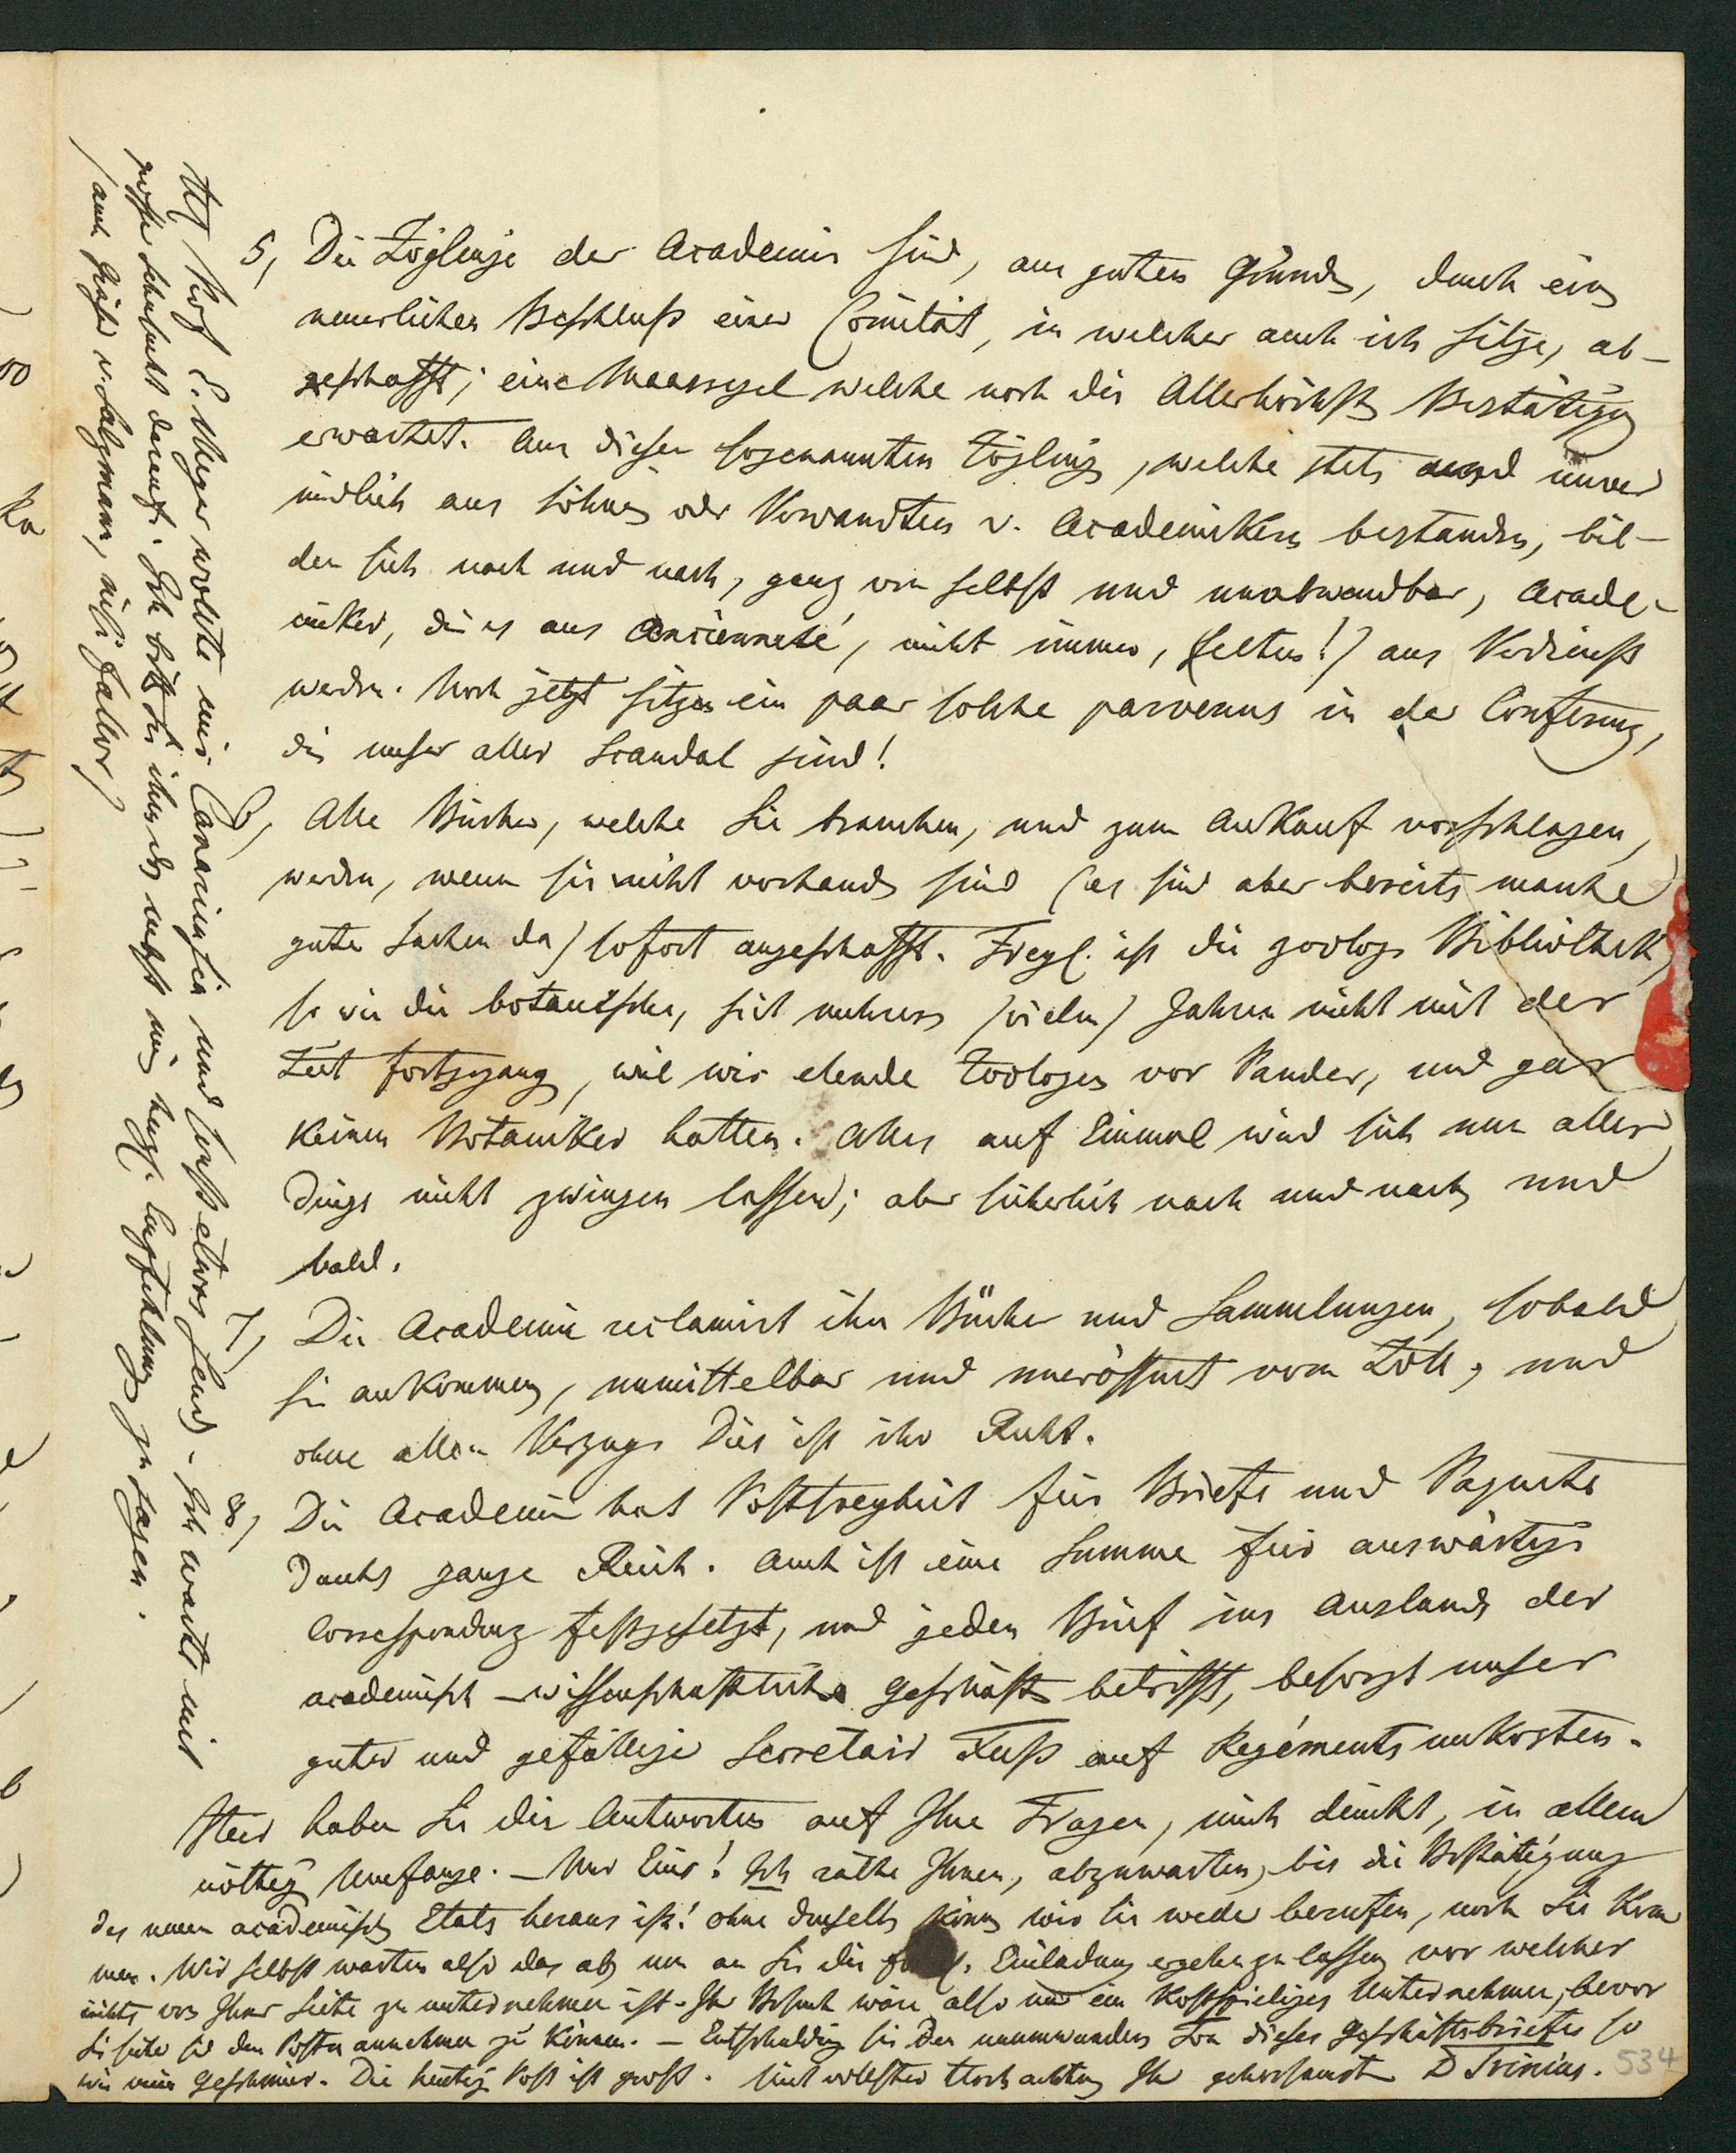 5, Die Zöglinge der Academie sind, aus guten Gründen, durch einen
neuerlichen Beschluß einer Comität, in welcher auch ich sitze, ab-
geschafft; eine Maassregel welche noch die Allerhöchste Bestätigung
erwartet. Aus diesen sogenannten Zöglingen, welche stets und unver
midlich aus Söhnen oder Verwandten v. Academikern bestanden, bil-
den sich nach und nach, ganz von selbst und unabwendbar, Acade-
miker, die es aus Ancienneté, nicht immer, (selten!) aus Verdienst
werden. Noch jetzt sitzen ein paar solche parvenus in der Conferenz,
die unser aller Scandal sind!
6, Alle Bücher, welche Sie brauchen, und zum Ankauf vorschlagen,
werden, wenn sie nicht vorhanden sind (es sind aber bereits manche
gute Sachen da) sofort angeschafft. Freyl. ist die zoolog. Bibliothek,
so wie die botanische, seit mehrern (vielen) Jahren nicht mit der
Zeit fortgegangen, weil wir elende Zoologen vor Pander, und gar
keinen Botaniker hatten. Alles auf Einmal wird sich nun aller
dings nicht zwingen lassen; aber sicherlich nach und nach und
bald.
7, Die Academie reclamirt ihre Bücher und Sammlungen, sobald
sie ankommen, unmittelbar und uneröffnet vom Zoll, und
ohne allen Verzug. Dies ist ihr Recht.
8, Die Academie hat Postfreyheit für Briefe und Paquete
durchs ganze Reich. Auch ist eine Summe für auswärtige
Correspondenz festgesetzt, und jeden Brief ins Ausland der
academisch-wissenschaftliche Geschäfte betrifft, besorgt unser
guter und gefälliger Secretair Fuß auf Regimentsunkosten.
Hier haben Sie die Antworten auf Ihre Fragen, mich dünkt, in allem
nöthigen Umfange. - Nur Eins! Ich rathe Ihnen, abzuwarten, bis die Bestätigung
des neuen academischen Etats heraus ist! ohne denselben können wir Sie weder berufen, noch Sie kom
men. Wir selbst warten also das ab um an Sie die Einladung ergehen zu lassen vor welcher
nichts von Ihrer Seite zu unternehmen ist. Ihr Besuch wäre also nur ein kostspieliges Unternehmen, bevor
Sie sicher sind den Posten annehmen zu können. - Entschuldigen Sie den unumwundenen Ton dieses Geschäftsbriefes so
wie mein Geschmier. Die heutige Post ist groß. Mit vollster Hochachtung Ihr gehorsamster D Trinius.
534
H Prof E. Meyer wollte mir Canariensia und sonst etwas senden. Ich warte mit
großer Sehnsucht darauf. Ich bitte Sie ihm das nebst meiner herzl. Empfehlung zu sagen.
(auch Gräser v. Salzmann, nisi fallor)